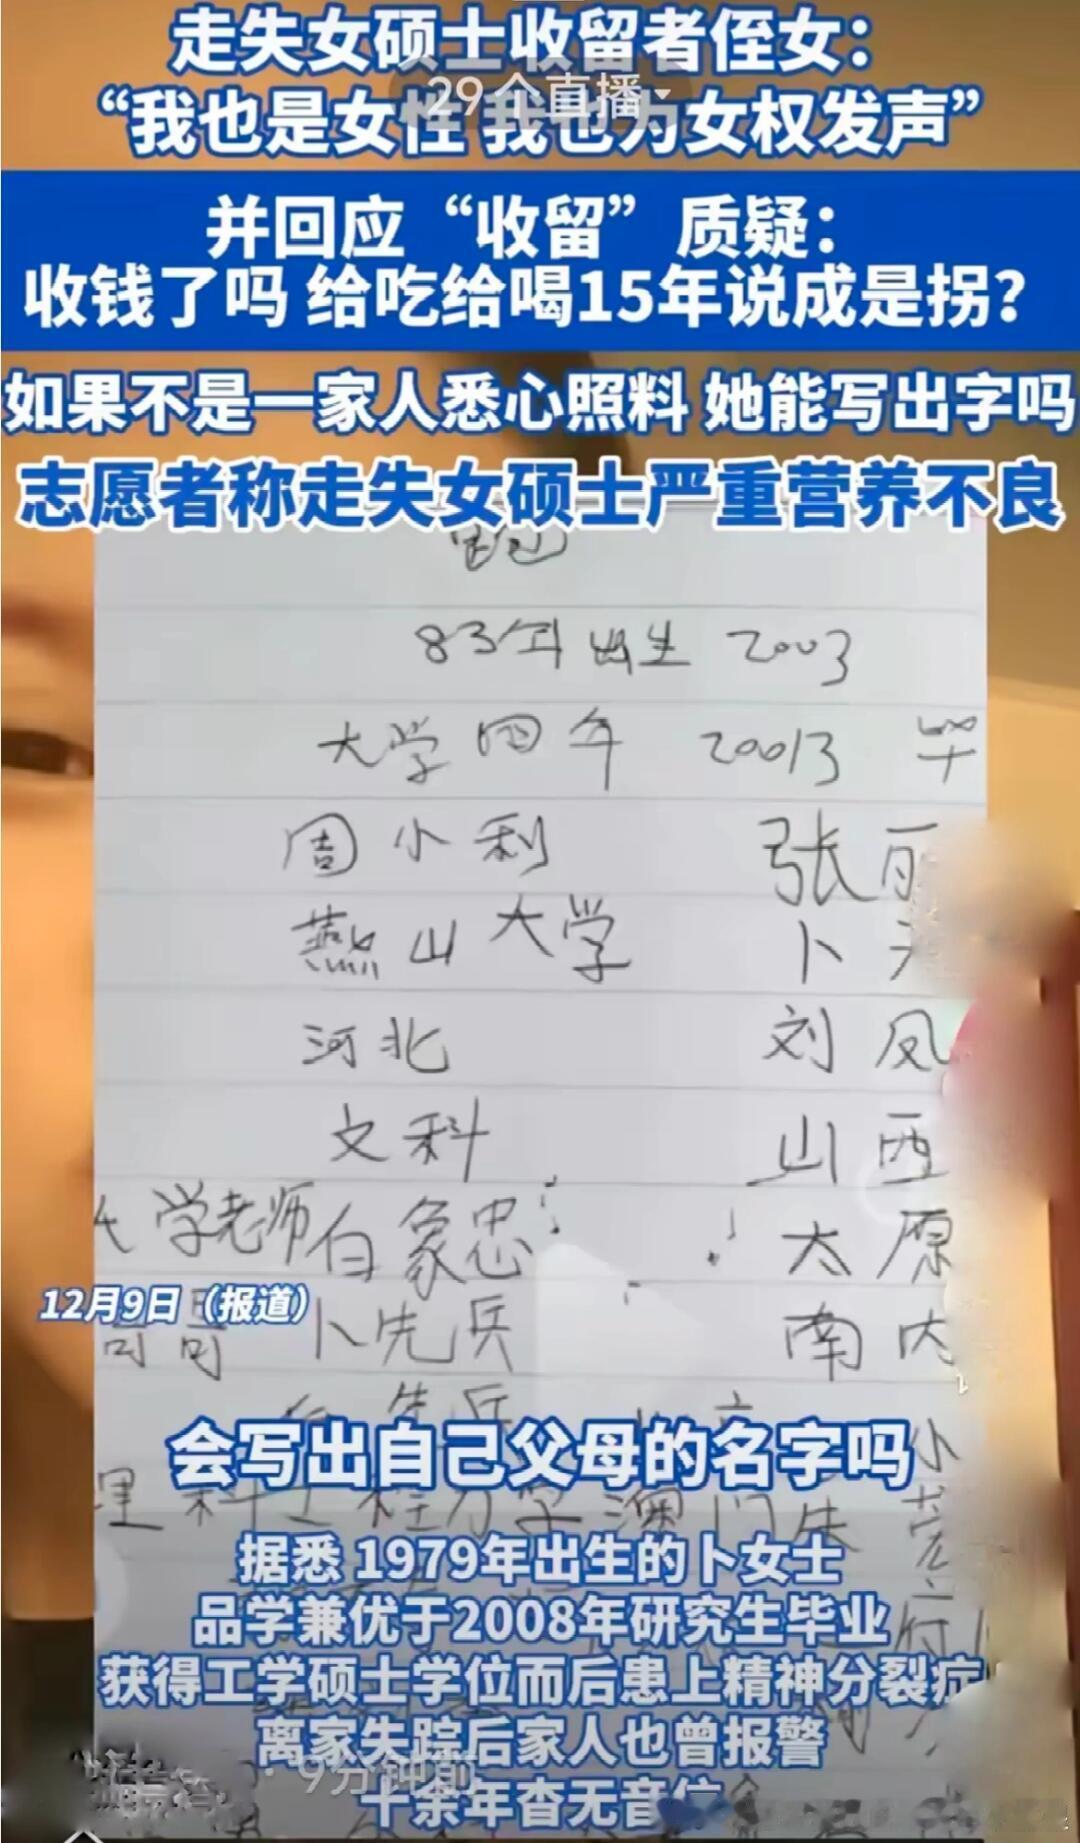 走失女硕士收留者侄女：
29个直播
“我也是女性 我也为女权发声”
并回应“收留”质疑：
收钱了吗 给吃给喝15年说成是拐？
如果不是一家人悉心照料 她能写出字吗
志愿者称走失女硕士严重营养不良
83年出生 2003
大学四年 20013 毕
周小利 张丽
燕山大学 卜
河北 刘凤
文科 山西
大学老师白象忠 太原
12月9日（报道）
哥哥 卜先兵 南内
会写出自己父母的名字吗
据悉 1979年出生的卜女士
品学兼优于2008年研究生毕业
获得工学硕士学位而后患上精神分裂症
离家失踪后家人也曾报警
9分钟前
十余年杳无音信